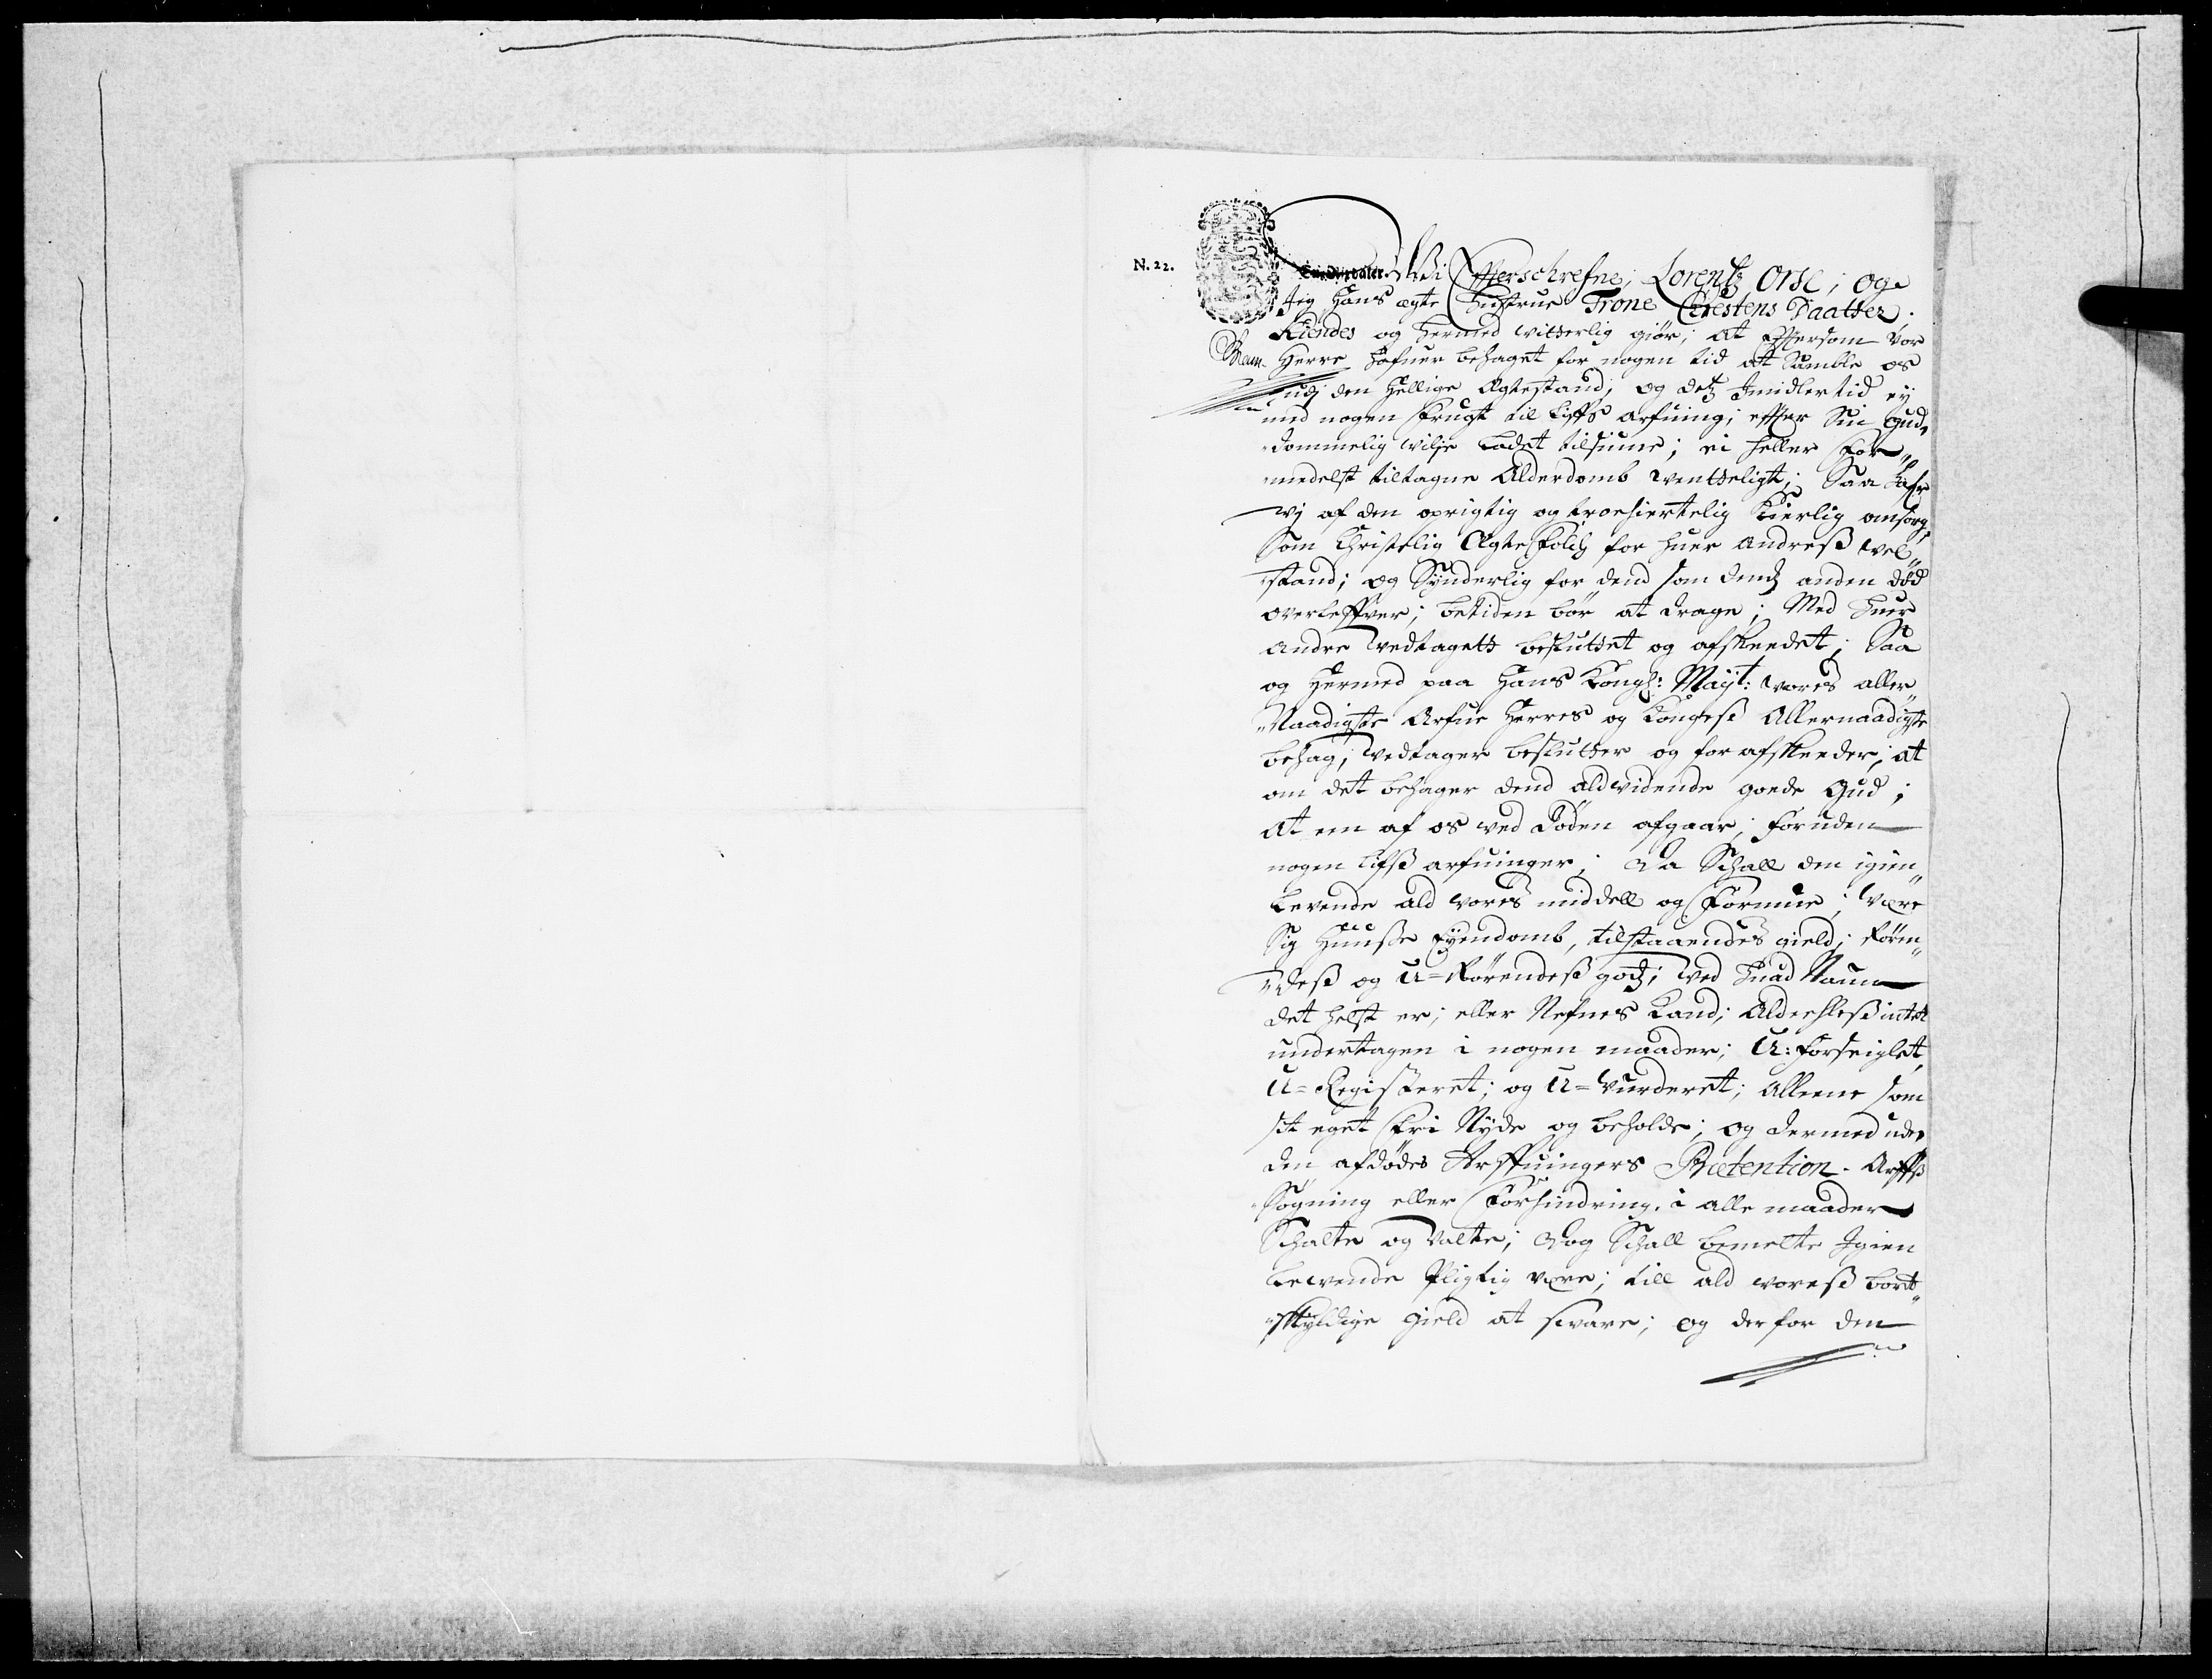 N. 22.
Wi Effterschrefne, Lorentz Orse, og
Jeg Hans ægte Hustrue Trone Chrestens Daatter,
Kiendes og hermed witterlig giør, at Eftersom Vor
Herre hafuer behaget for nogen tid at Samble os
udj den Hellige Ægtestand; og detz Imidlertid ej
med nogen frugt til Liffs arfuing, effter Sin Gud„
dommelig vilje ladet tilsiune; ei heller for„
medelst tiltagne Alderdomb wentteligt; Saa hafr
wj af den oprigtig og troehiertelig Kierlig omsorg,
Som Christelig Ægtefolch for huer andreß vel„
stand; og Sÿnderlig for dend som dendz anden død
overleffver; betiden bør at drage; Med huer
andre vedtagett besluttet og afskeedet; Saa
og Hermed paa Hans Kongl: Mayt: vores aller„
„Naadigste Arfue Herres og Kongeß Allernaadigste
behag, vedtager beslutter og for afskeeder, at
om det behager dend aldvidende goede Gud;
At een af os ved Døden afgaar, foruden
nogen Lifß arfuinger; Da Schall den igien„
Levende ald vores middell og Formue; være
Sig Huuse Eyendomb, tilstaaendes gield; Røren„
„deß og U=Rørendeß godz; ved huad Naun
det helst er; eller Nefnes Kand; Aldeehleß intet
undertagen i nogen maader; U:forseiglet,
U=Registeret; og U=Vurderet; Alleene som
sit eget frj Nyde og beholde; og dermed uden
den afdødes Arffuingers Prætention. Arffß
Søgning eller Forhindring, i alle maader
Schalte og Valte; Dog Schall bemelte Igien
Levende Pligtig være; till ald voreß bort„
„skyldige gield at svare; og derfor den